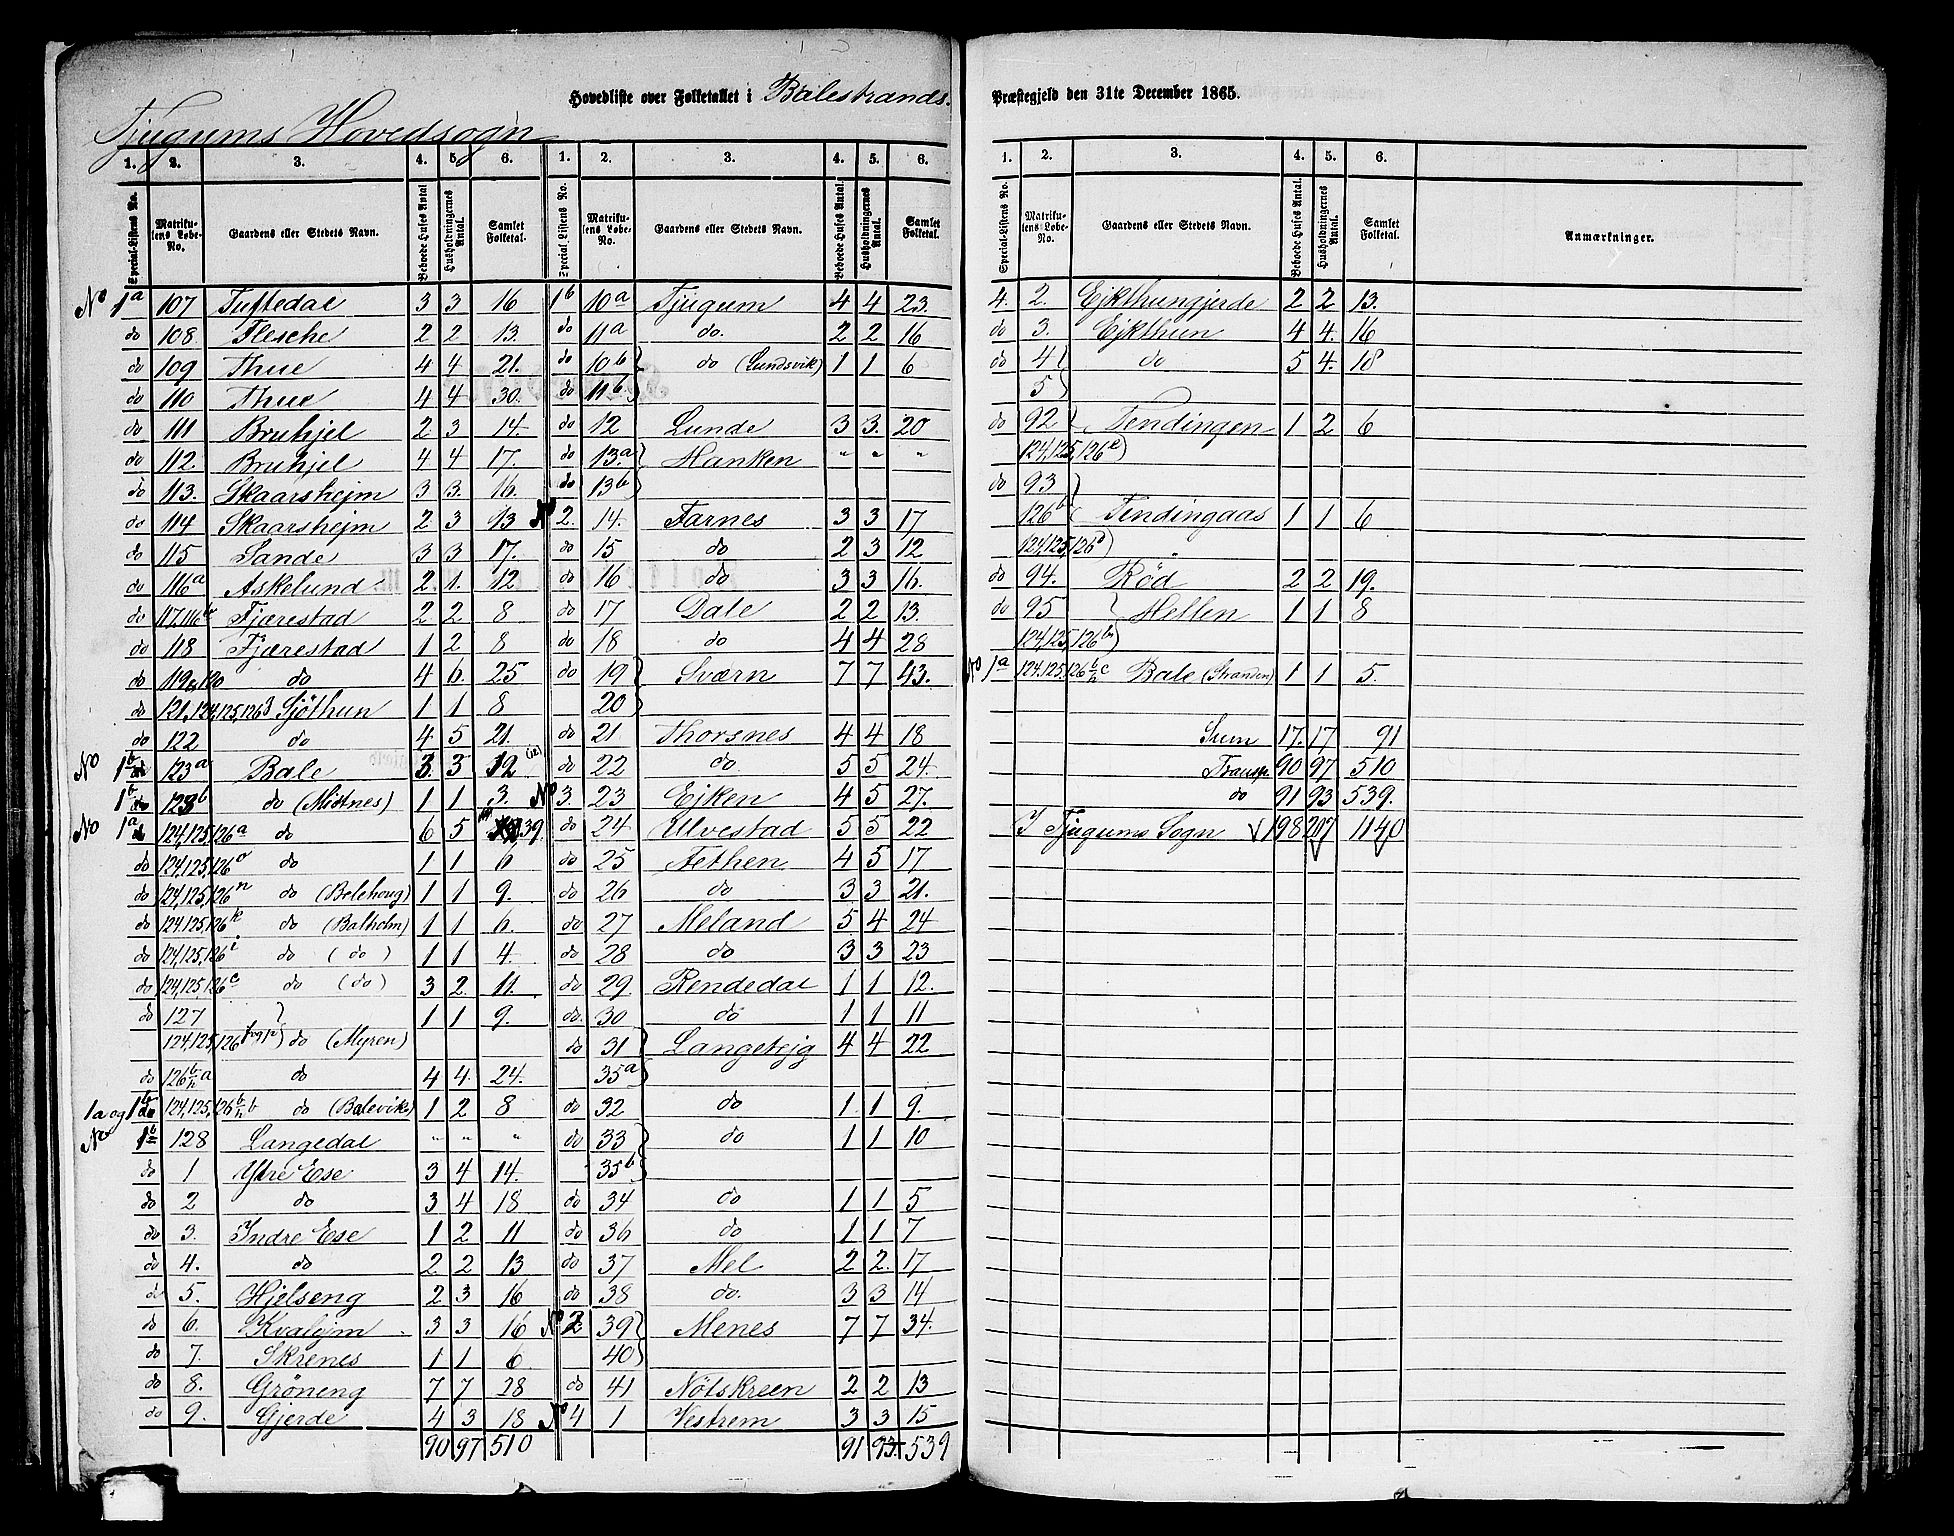 Hovedliste over Folketallet i Balestrands Præstegjeld den 31te December 1865.
Tjugums Hovedsogn
1. 2. 3. 4. 5. 6. 1. 2. 3. 4. 5. 6.
Special-Listens No. Matrikulens Løbe-No. Gaardens eller Stedets Navn. Beboede Huses Antal Husholdningernes Antal. Samlet Folketal. Special Listens No. Matrikulens Løbe-No. Gaardens eller Stedets Navn. Beboede Huses Antal. Husholdningernes Antal. Samlet Folketal.
No 1a 107 Tuftedal 3 3 16
do 108. Flesche 2 2 13.
do 109 Thue 4 4 21.
do 110 Thue 4 4 30.
do 111 Bruhjel 2 3 14.
do 112. Bruhjel 4 4 17.
do 113. Skaarshejm 3 3. 16.
do 114 Skaarshejm 2. 3 13
do 115 Sande 3 3 17.
do 116a Askelund 2. 1. 12
do 117,116b Fjærestad 2 2 8
do 118 Fjærestad 1 2 8
do 119,120 do 4 6. 25
do 121,124,125,126 Sjøthun 1 1 8
do 122 do 4 5 21.
No 1b 123a Bale 3. 3 12 (12)
1b 123b do (Midtnes) 1 1 3.
No 1a 124,125,126a do 6 5 39.
do 124,125,126o do 1 1 6
do 124,125,126n do (Belehoug) 1 1 9.
do 124,125,126k do (Balholm) 1 1 6.
do 124,125,126i do (do) 1 1 4.
do 124,125,126c do (do) 3 2. 11.
do 127 } 1 1 9.
124,125,126 } do (Myren)
do 126b/h a do 4 4. 24.
1a og 1b 124,125,126b/h b do (Balevik) 1 2 8
No 1b 128 Langedal " " "
do 1 Ytre Ese 3 4 14.
do 2 do 3 4 18
do 3. Indre Ese 1 2 11
do 4. do 2 2 13
do 5. Hjelseng 2 3 16
do 6. Kvalejm 3 3 16
do 7. Skrenes 1 1 6.
do 8. Grøneng 7 7 28
do 9. Gjerde 4 3 18
90 97 510
1b 10a Tjugum 4 4 23.
do 11a do. 2 2 16
do 10b } do (Lundsvik) 1 1 6
do 11b. }
do 12 Lunde 3 3. 20
do 13.a } Hanken " " "
do 13b }
No 2. 14. Farnes 3 3 17
do 15 do 2 3 12
do 16 do 3 3 16.
do 17 Dale 2 2 13.
do 18 do 4 4 28
do 19 } Sværn 7 7 43.
20 }
do 21 Thorsnes 4 4 18
do 22 do. 5 5 24.
No 3. 23 Ejken 4 5 27.
do 24 Ulvestad 5 5 22
do 25 Fethen 4 5 17
do 26 do 3 3 21.
do 27 Meland 5 4 24
do 28 do 3 3 23
do 29 Rendedal 1 1 12.
do. 30 do 1 1 11
do 31 } Langetejg 4 4 22
35a }
do 32 do 1. 1 9.
do 33 } do 1 1 10
35b }
do 34 do 1 1 5
do 36 do 1 1 7
do 37 Mel 2 2. 17
do 38 do. 3 3 14
No 2 39 } Menes 7 7 34.
40 }
do 41 Nøtskreen 2 2 13
No 4 1 Vestrem 3 3 15
91 93. 539
1. 2. 3. 4. 5. 6.
Special-Listens No. Matrikulens Løbe-No. Gaardens eller Stedets Navn. Beboede Huses Antal. Husholdningernes Antal. Samlet Folketal. Anmærkninger.
4. 2. Ejkthungjerde 2 2 13.
do 3. Ejkthun 4 4. 16
do 4 } do 5 4. 18
5 }
do 92 } Tendingen 1 2 6
124,125,126e }
do 93 }
126b } Tendingaas 1 1 6
124,125,126d }
do 94. Rød 2 2 19.
do 95 } Hellen 1 1 8
124,125,126 }
No 1a 124,125,126b/h c Bale (Stranden) 1 1 5.
Sum 17. 17 91
Transp. 90 97 510
do 91 93 539.
I Tjugums Sogn 198 207 1140